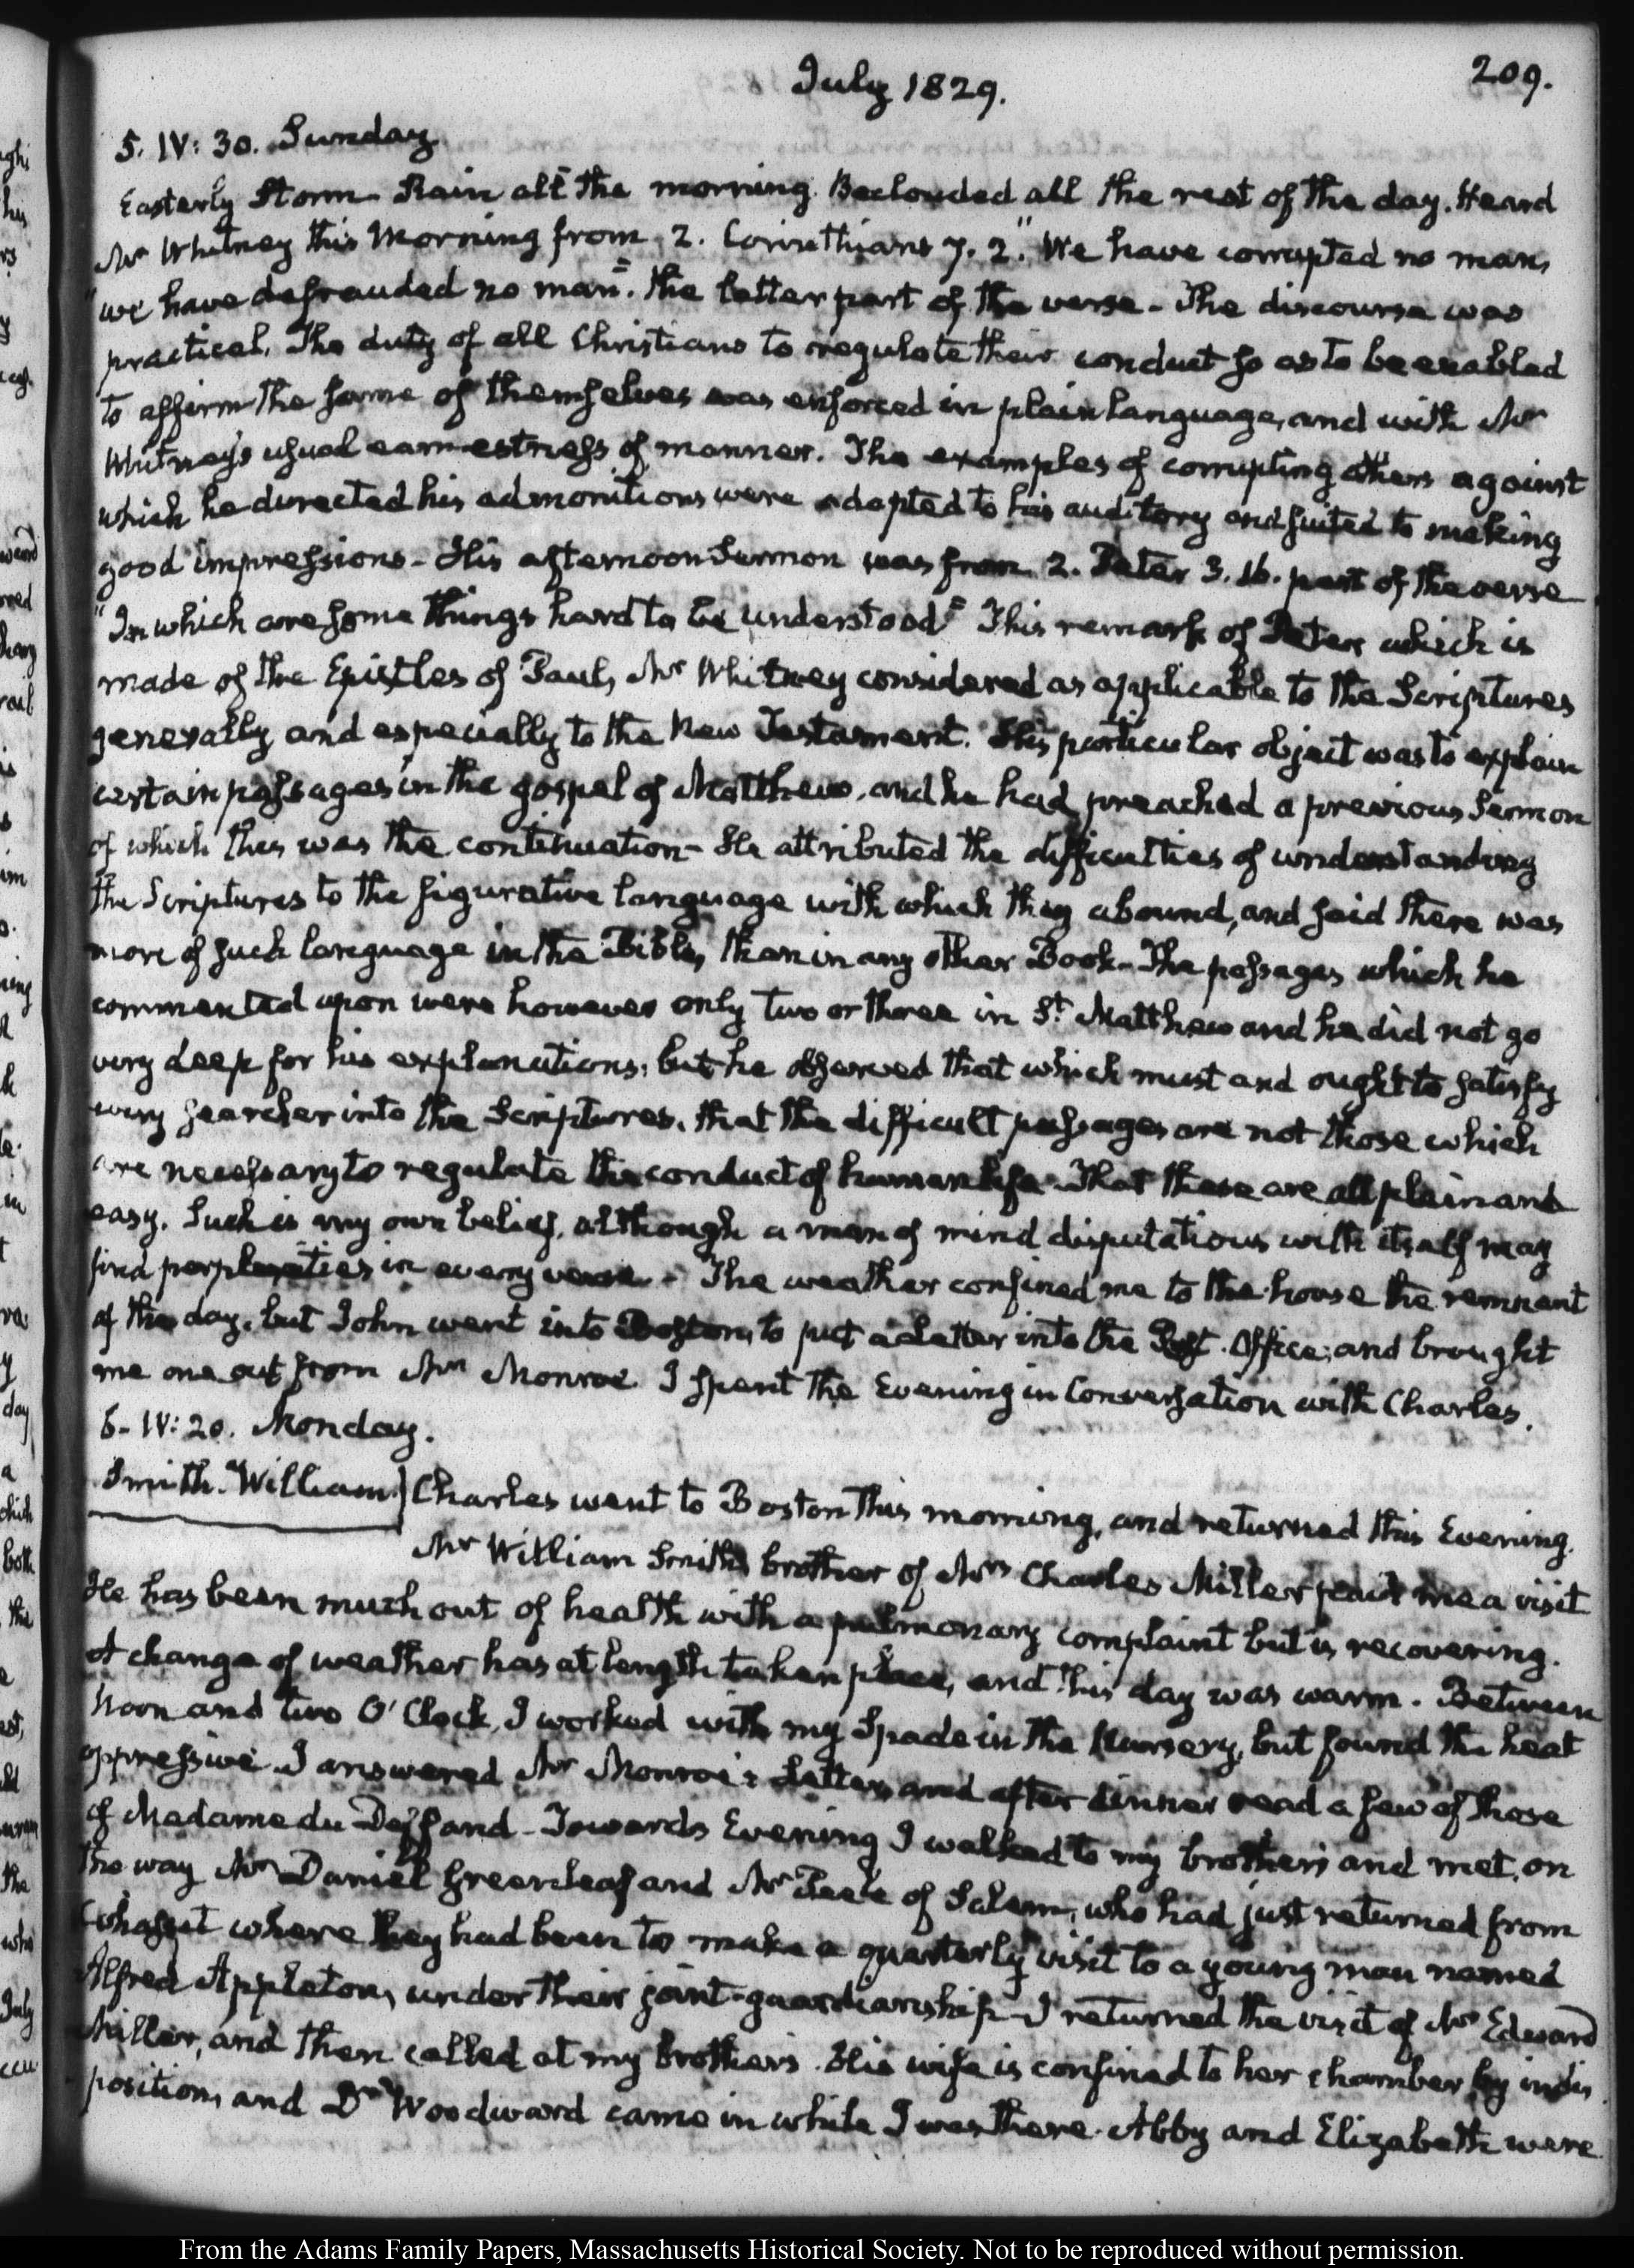 July 1829.
209.
5. IV: 30. Sunday
Easterly Storm. Rain all the morning. Beclouded all the rest of the day. Heard
Mr Whitney this Morning from 2. Corinthians 7. 2. "We have corrupted no man,
"we have defrauded no man". the latter part of the verse - The discourse was
practical. The duty of all Christians to regulate their conduct so as to be enabled
to affirm the same of themselves was enforced in plain language, and with Mr
Whitney's usual earnestness of manner. The examples of corrupting others against
which he directed his admonitions were adapted to his auditory and suited to making
good impressions - His afternoon Sermon was from 2. Peter 3. 16. part of the verse
"In which are some things hard to be understood" This remark of Peter which is
made of the Epistles of Paul, Mr Whitney considered as applicable to the Scriptures
generally and especially to the New Testament. His particular object was to explain
certain passages in the gospel of Matthew, and he had preached a previous Sermon
of which this was the continuation - He attributed the difficulties of understanding
the Scriptures to the figurative language with which they abound, and said there was
more of such language in the Bible, than in any other Book - The passages which he
commented upon were however only two or three in St. Matthew and he did not go
very deep for his explanations; but he observed that which must and ought to satisfy
every searcher into the Scriptures, that the difficult passages are not those which
are necessary to regulate the conduct of human life - That these are all plain and
easy. Such is my own belief, although a man of mind disputatious with itself may
find perplexities in every verse. - The weather confined me to the house the remnant
of the day, but John went into Boston, to put a Letter into the Post-Office; and brought
me one out from Mr Monroe. I spent the Evening in Conversation with Charles.
6. IV: 20. Monday.
Smith. William] Charles went to Boston this morning, and returned this Evening.
Mr William Smith, brother of Mrs Charles Miller paid me a visit
He has been much out of health with a pulmonary complaint but is recovering.
A change of weather has at length taken place, and this day was warm. Between
Noon and two O'Clock, I worked with my Spade in the Nursery, but found the heat
oppressive. I answered Mr Monroe's Letter, and after dinner read a few of those
of Madame du Deffand - Towards Evening I walked to my brother's and met, on
the way Mr Daniel Greenleaf and Mr Peele of Salem, who had just returned from
Cohasset where they had been to make a quarterly visit to a young man named
Alfred Appleton, under their joint-guardianship - I returned the visit of Mr Edward
Miller, and then called at my brother's. His wife is confined to her chamber by indis
position, and Dr Woodward came in while I was there. Abby and Elizabeth were
From the Adams Family Papers, Massachusetts Historical Society. Not to be reproduced without permission.